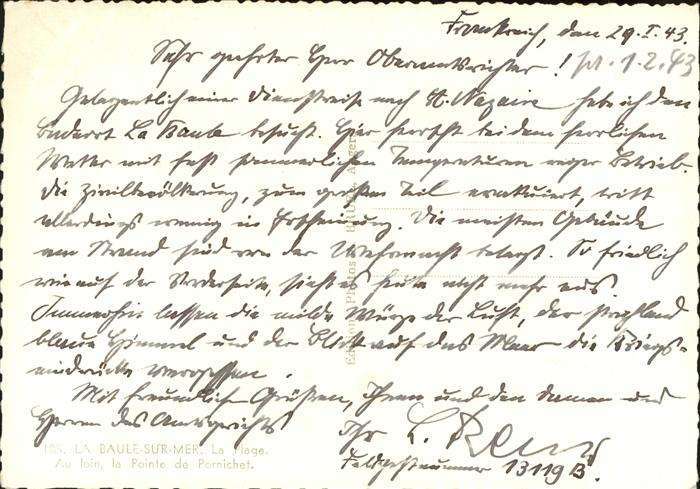 Frankreich, den 29.I.43.
Sehr geehrter Herr Oberamtsrichter! pr. 1.2.43
Gelegentlich einer Dienstreise nach St. Nazaire habe ich den
Badeort La Baule besucht. Hier herrscht bei dem herrlichen
Wetter mit fast sommerlichen Temperaturen reger Betrieb.
Die Zivilbevölkerung, zum großen Teil evakuiert, tritt
allerdings wenig in Erscheinung. Die meisten Gebäude
am Strand sind von der Wehrmacht belegt. So friedlich
wie auf der Vorderseite, sieht es heute nicht mehr aus
Immerhin lassen die milde Würze der Luft, der strahlend
blaue Himmel und der Blick auf das Meer die Kriegs-
eindrücke vergessen.
Mit freundlichen Grüßen, Ihnen und den Damen und
Herren des Amtsgerichts
Ihr L.
Feldpostnummer 13119 B.
LA BAULE-SUR-MER. La Plage.
Au loin, la Pointe de Pornichet.